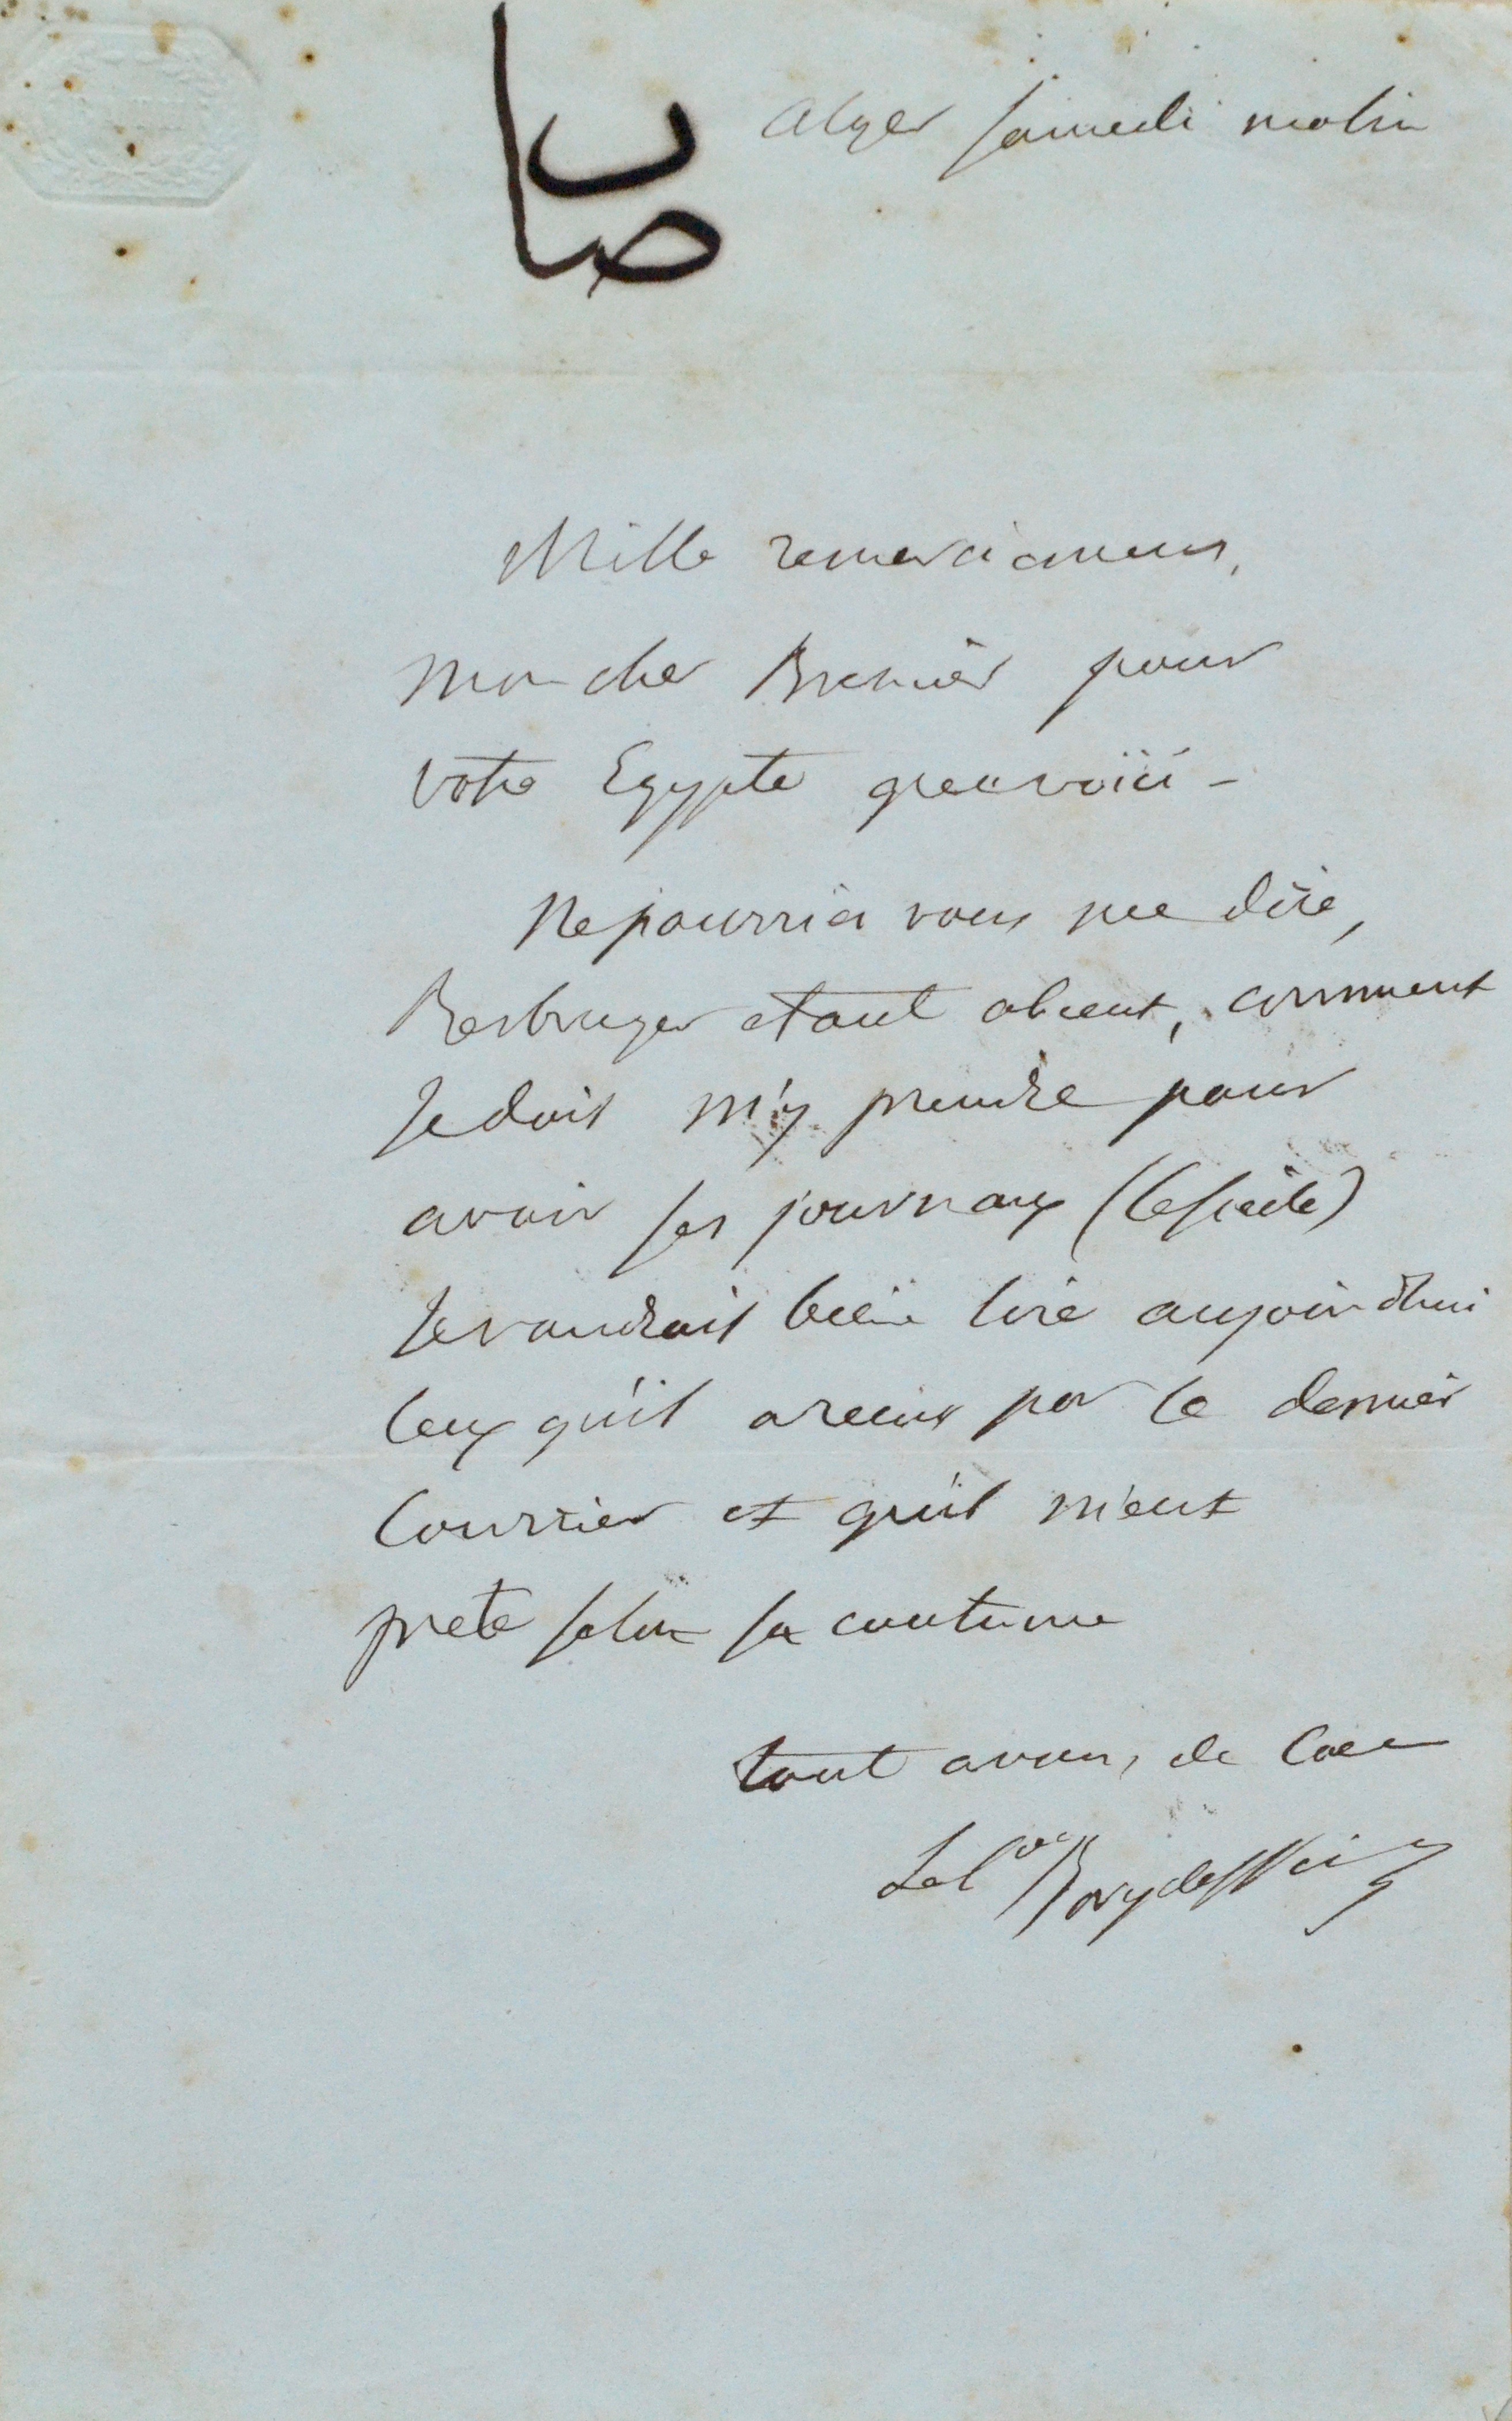 صاں
Alger samedi matin
Mille remerciemens,
mon cher Bresnier pour
votre Egypte que voici -
Ne pourriez vous me dire,
Berbruger etant absent, comment
Je dois m'y prendre pour
avoir ses journaux (le siecle)
Je voudrais bien lire aujourd'hui
ceux qu'il a recus par le dernier
Courrier et qu'il m'eut
preté selon sa coutume
tout a vous, de Coeur
Le Cel Bory de St Vincent